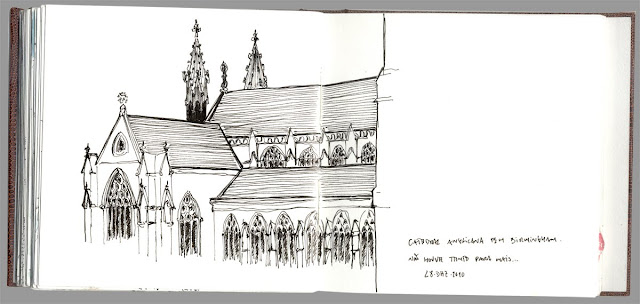 CATEDRAL EM BIRMINGHAM.
NÃO HOUVE TEMPO PARA MAIS...
28.DEZ.2010